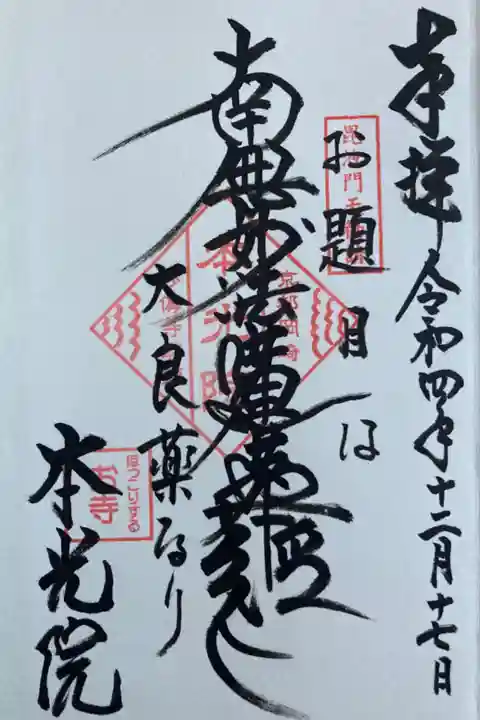 奉拝 令和四年十二月十七日
お題目は
南無妙法蓮華経
大良薬なり
本光院
毘沙門天
京都岡崎
本光院
ほっこりする
お寺